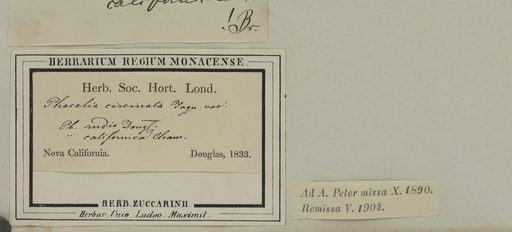 californica
! Br.
HERBARIUM REGIUM MONACENSE.
Herb. Soc. Hort. Lond.
Phacelia circinata Jaqu. var.
Ph. rudis Dougl.
" californica Cham.
Nova California. Douglas, 1833.
HERB. ZUCCARINII
Herbar. Univ. Ludov. Maximil.
Ad A. Peter missa X. 1890.
Remissa V. 1904.